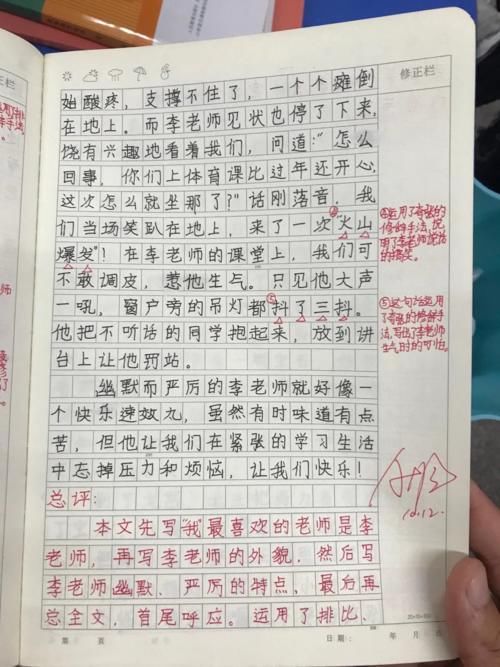 修正栏
始酸疼，支撑不住了，一个个瘫倒
在地上。而李老师见状也停了下来，
饶有兴趣地看着我们，问道："怎么
回事，你们上体育课比过年还开心，
这次怎么就坐那了？"话刚落音，我
们当场笑趴在地上，来了一次"火山
爆发"！在李老师的课堂上，我们可
不敢调皮，惹他生气。只见他大声
一吼，窗户旁的吊灯都抖了三抖。
他把不听话的同学抱起来，放到讲
台上让他罚站。
幽默而严厉的李老师就好像一
个快乐速效丸，虽然有时味道有点
苦，但他让我们在紧张的学习生活
中忘掉压力和烦恼，让我们快乐！
④运用了夸张的
修辞手法，说
明了李老师说话
的搞笑。
⑤这句话运用
了夸张的修辞手
法，写出了李老师
生气时的可怕。
10.12.
总评：
本文先写"我"最喜欢的老师是李
老师，再写李老师的外貌，然后写
李老师幽默、严厉的特点，最后再
总全文，首尾呼应。运用了排比、
第 页
日期： 年 月 日